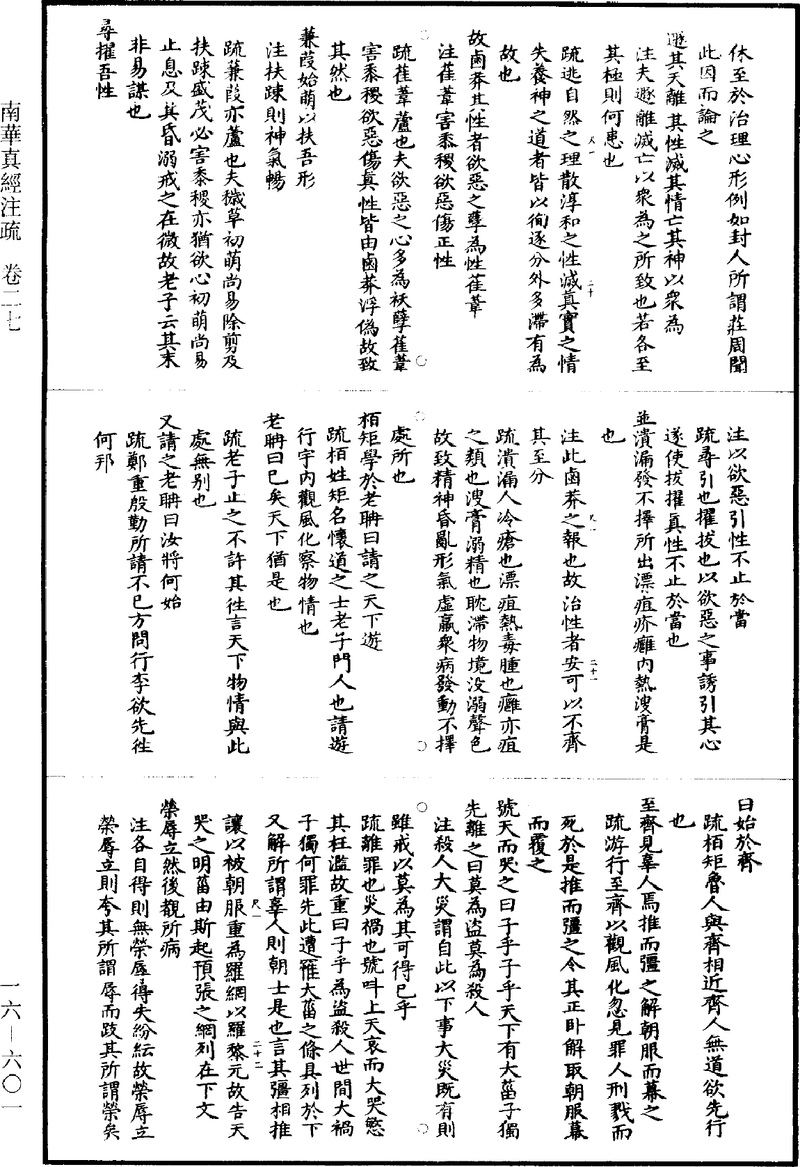 南華真經注疏　卷二七
一六—六〇一
休至於治理心形例如封人所謂莊周聞
此因而論之
遁其天離其性滅其情亡其神以衆為
注夫遯離滅亡以衆為之所致也若各至
其極則何患也
疏逃自然之理散淳和之性滅真實之情
失養神之道者皆以徇逐分外多滯有為
故也
故鹵莽其性者欲惡之孽為性萑葦
注萑葦害黍稷欲惡傷正性
疏萑葦蘆也夫欲惡之心多為袄孽萑葦
害黍稷欲惡傷真性皆由鹵莽浮偽故致
其然也
蒹葭始萌以扶吾形
注扶踈則神氣暢
疏蒹葭亦蘆也夫穢草初萌尚易除剪及
扶踈盛茂必害黍稷亦猶欲心初萌尚易
止息及其昏溺戒之在微故老子云其未
非易謀也
尋擢吾性
尺一
二十
注以欲惡引性不止於當
疏尋引也擢拔也以欲惡之事誘引其心
遂使拔擢真性不止於當也
並潰漏發不擇所出漂疽疥癰內熱溲膏是
也
注此鹵莽之報也故治性者安可以不齊
其至分
疏潰漏人冷瘡也漂疽熱毒腫也癰亦疽
之類也溲膏溺精也耽滯物境没溺聲色
故致精神昏亂形氣虛羸衆病發動不擇
處所也
栢矩學於老聃曰請之天下遊
疏栢姓矩名懷道之士老子門人也請遊
行宇內觀風化察物情也
老聃曰已矣天下猶是也
疏老子止之不許其徃言天下物情與此
處無別也
又請之老聃曰汝將何始
疏鄭重殷勤所請不已方問行李欲先徃
何邦
尺一
二十一
曰始於齊
疏栢矩魯人與齊相近齊人無道欲先行
也
至齊見辜人焉推而彊之解朝服而幕之
疏游行至齊以觀風化忽見罪人刑戮而
死於是推而彊之令其正卧解取朝服幕
而覆之
號天而哭之曰子乎子乎天下有大菑子獨
先離之曰莫為盜莫為殺人
注殺人大災謂自此以下事大災既有則
雖戒以莫為其可得已乎
疏離罪也災禍也號呌上天哀而大哭慜
其枉濫故重曰子乎為盜殺人世間大禍
子獨何罪先此遭罹大菑之條具列於下
又解所謂辜人則朝士是也言其彊相推
讓以被朝服重為羅網以羅黎元故告天
哭之明菑由斯起預張之網列在下文
榮辱立然後覩所病
注各自得則無榮辱得失紛紜故榮辱立
榮辱立則夸其所謂辱而跂其所謂榮矣
尺一
二十二